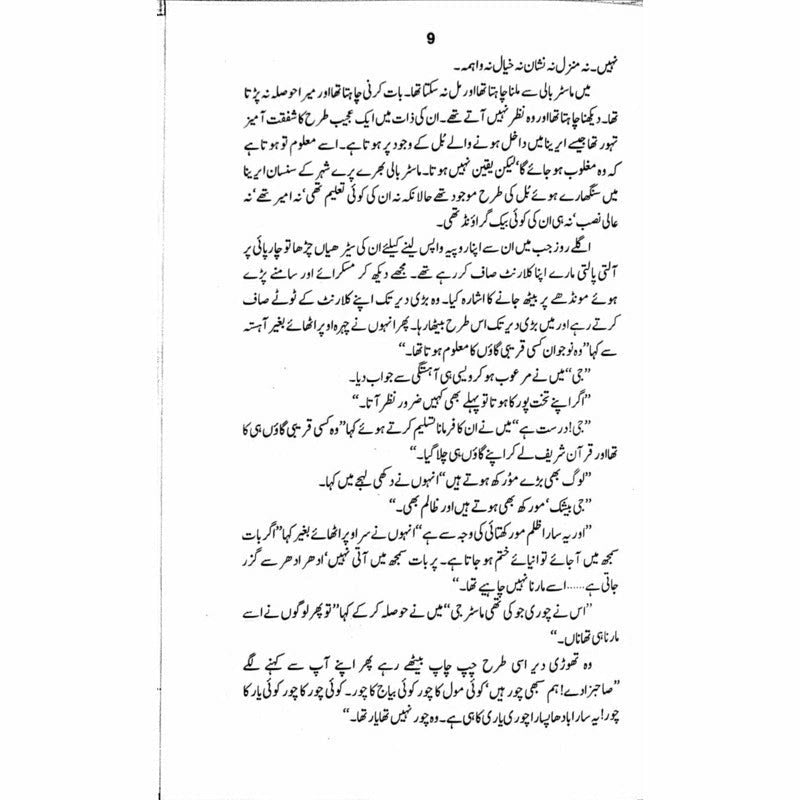 9
نہیں۔ نہ منزل نہ نشان نہ خیال نہ واہمہ۔
میں ماسٹر بالی سے ملنا چاہتا تھا اور مل نہ سکتا تھا۔ بات کرنی چاہتا تھا اور میرا حوصلہ نہ پڑتا
تھا۔ دیکھنا چاہتا تھا اور وہ نظر نہیں آتے تھے۔ ان کی ذات میں ایک عجیب طرح کا شفقت آمیز
تہور تھا جیسے ایرینا میں داخل ہونے والے بُل کے وجود پر ہوتا ہے۔ اسے معلوم تو ہوتا ہے
کہ وہ مغلوب ہو جائے گا‘ لیکن یقین نہیں ہوتا۔ ماسٹر بالی بھرے پرے شہر کے سنسان ایرینا
میں سنگھارے ہوئے بُل کی طرح موجود تھے حالانکہ نہ ان کی کوئی تعلیم تھی‘ نہ امیر تھے‘ نہ
عالی نصب‘ نہ ہی ان کی کوئی بیک گراؤنڈ تھی۔
اگلے روز جب میں ان سے اپنا روپیہ واپس لینے کیلئے ان کی سیڑھیاں چڑھا تو چارپائی پر
آلتی پالتی مارے اپنا کلارنٹ صاف کر رہے تھے۔ مجھے دیکھ کر مسکرائے اور سامنے پڑے
ہوئے مونڈھے پر بیٹھ جانے کا اشارہ کیا۔ وہ بڑی دیر تک اپنے کلارنٹ کے ٹوٹے صاف
کرتے رہے اور میں بڑی دیر تک اس طرح بیٹھا رہا۔ پھر انہوں نے چہرہ اوپر اٹھائے بغیر آہستہ
سے کہا ”وہ نوجوان کسی قریبی گاؤں کا معلوم ہوتا تھا۔“
”جی“ میں نے مرعوب ہو کر ویسی ہی آہستگی سے جواب دیا۔
”اگر اپنے تخت پور کا ہوتا تو پہلے بھی کہیں ضرور نظر آتا۔“
”جی! درست ہے“ میں نے ان کا فرمانا تسلیم کرتے ہوئے کہا ”وہ کسی قریبی گاؤں ہی کا
تھا اور قرآن شریف لے کر اپنے گاؤں ہی چلا گیا۔“
”لوگ بھی بڑے مُورکھ ہوتے ہیں“ انہوں نے دکھی لہجے میں کہا۔
”جی بیشک‘ مورکھ بھی ہوتے ہیں اور ظالم بھی۔“
”اور یہ سارا ظلم مورکھتائی کی وجہ سے ہے“ انہوں نے سر اوپر اٹھائے بغیر کہا ”اگر بات
سمجھ میں آ جائے تو انیائے ختم ہو جاتا ہے۔ پر بات سمجھ میں آتی نہیں‘ ادھر ادھر سے گزر
جاتی ہے...... اسے مارنا نہیں چاہیے تھا۔“
”اس نے چوری جو کی تھی ماسٹر جی“ میں نے حوصلہ کر کے کہا ”تو پھر لوگوں نے اسے
مارنا ہی تھا ناں۔“
وہ تھوڑی دیر اسی طرح چپ چاپ بیٹھے رہے پھر اپنے آپ سے کہنے لگے
”صاحبزادے! ہم سبھی چور ہیں‘ کوئی مول کا چور کوئی بیاج کا چور۔ کوئی چور کا چور کوئی یار کا
چور! یہ سارا بادھا پسارا چوری یاری کا ہی ہے۔ وہ چور نہیں تھا یار تھا۔“